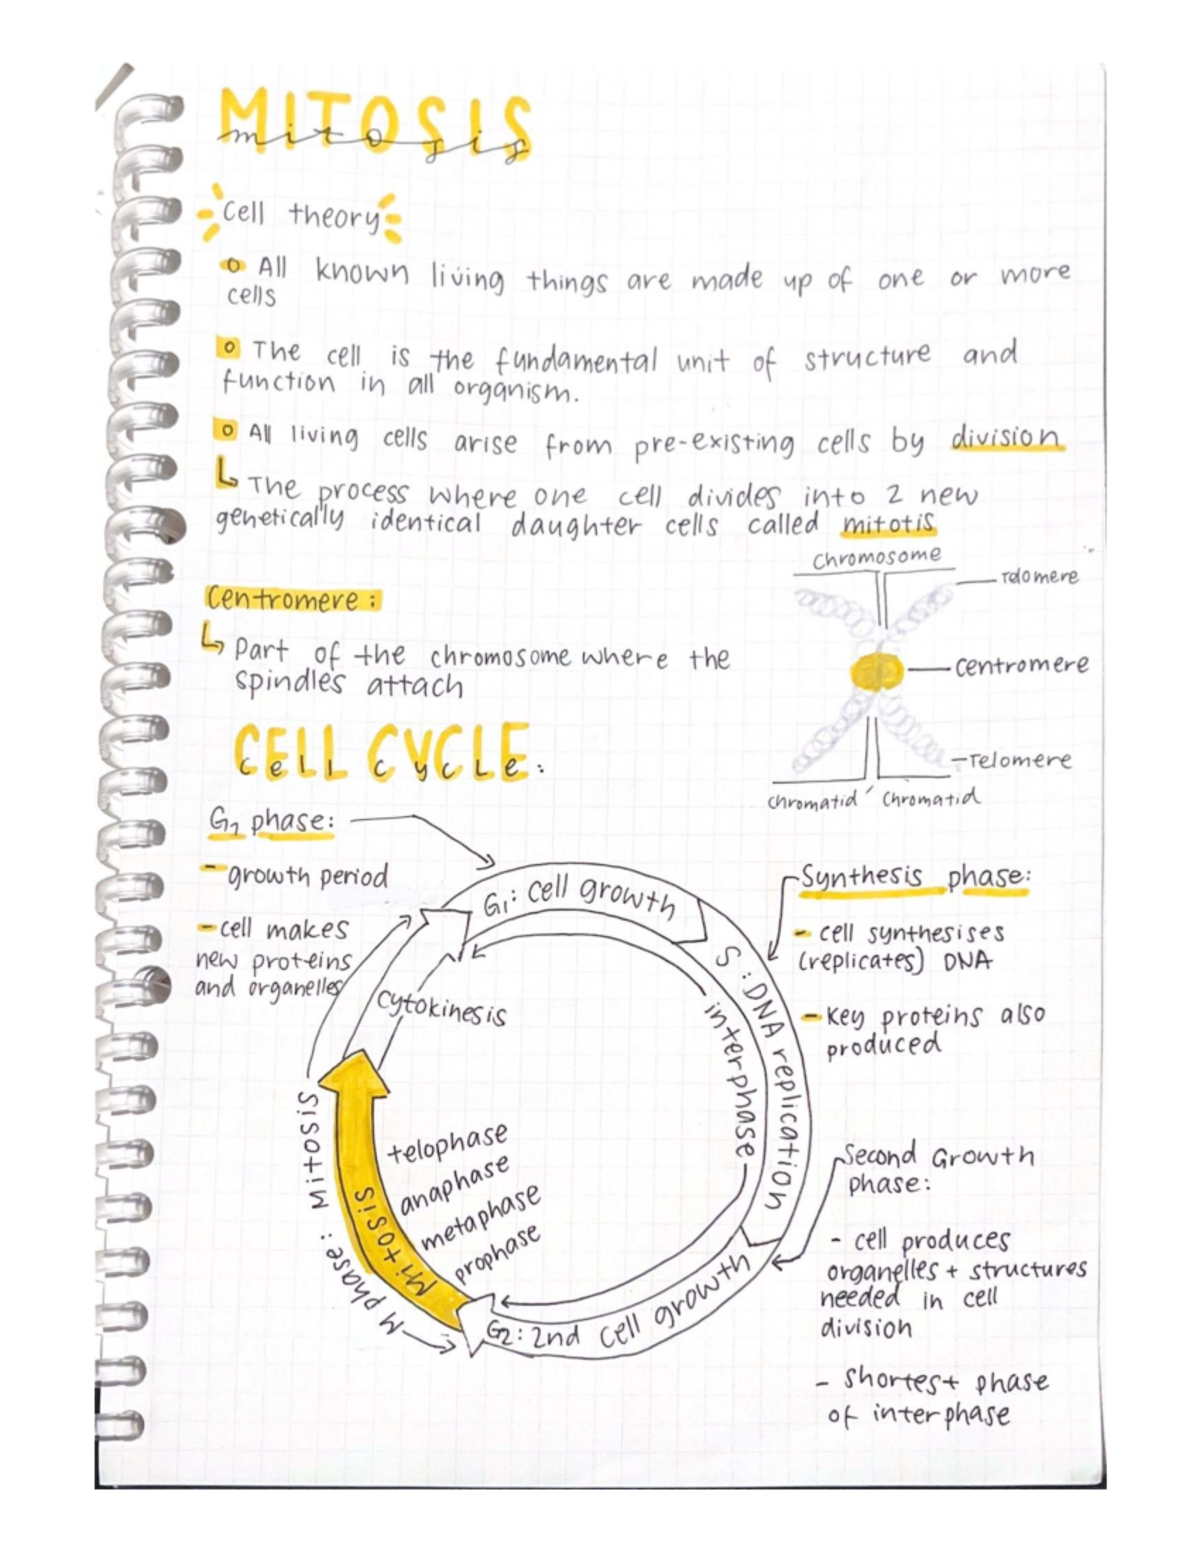 MITOSIS
mitosis
Cell theory
o All known living things are made up of one or more
cells
o The cell is the fundamental unit of structure and
function in all organism.
o All living cells arise from pre-existing cells by division
↳ The process where one cell divides into 2 new
genetically identical daughter cells called mitotis
chromosome
Telomere
Centromere:
↳ Part of the chromosome where the
spindles attach
centromere
Telomere
chromatid
chromatid
CELL CYCLE
cell cycle:
G1 phase:
- growth period
- cell makes
new proteins
and organelles
G1: cell growth
Synthesis phase:
- cell synthesises
(replicates) DNA
- Key proteins also
produced
S: DNA replication
interphase
cytokinesis
M phase: Mitosis
Mitosis
telophase
anaphase
metaphase
prophase
G2: 2nd cell growth
Second Growth
phase:
- cell produces
organelles + structures
needed in cell
division
- shortest phase
of interphase